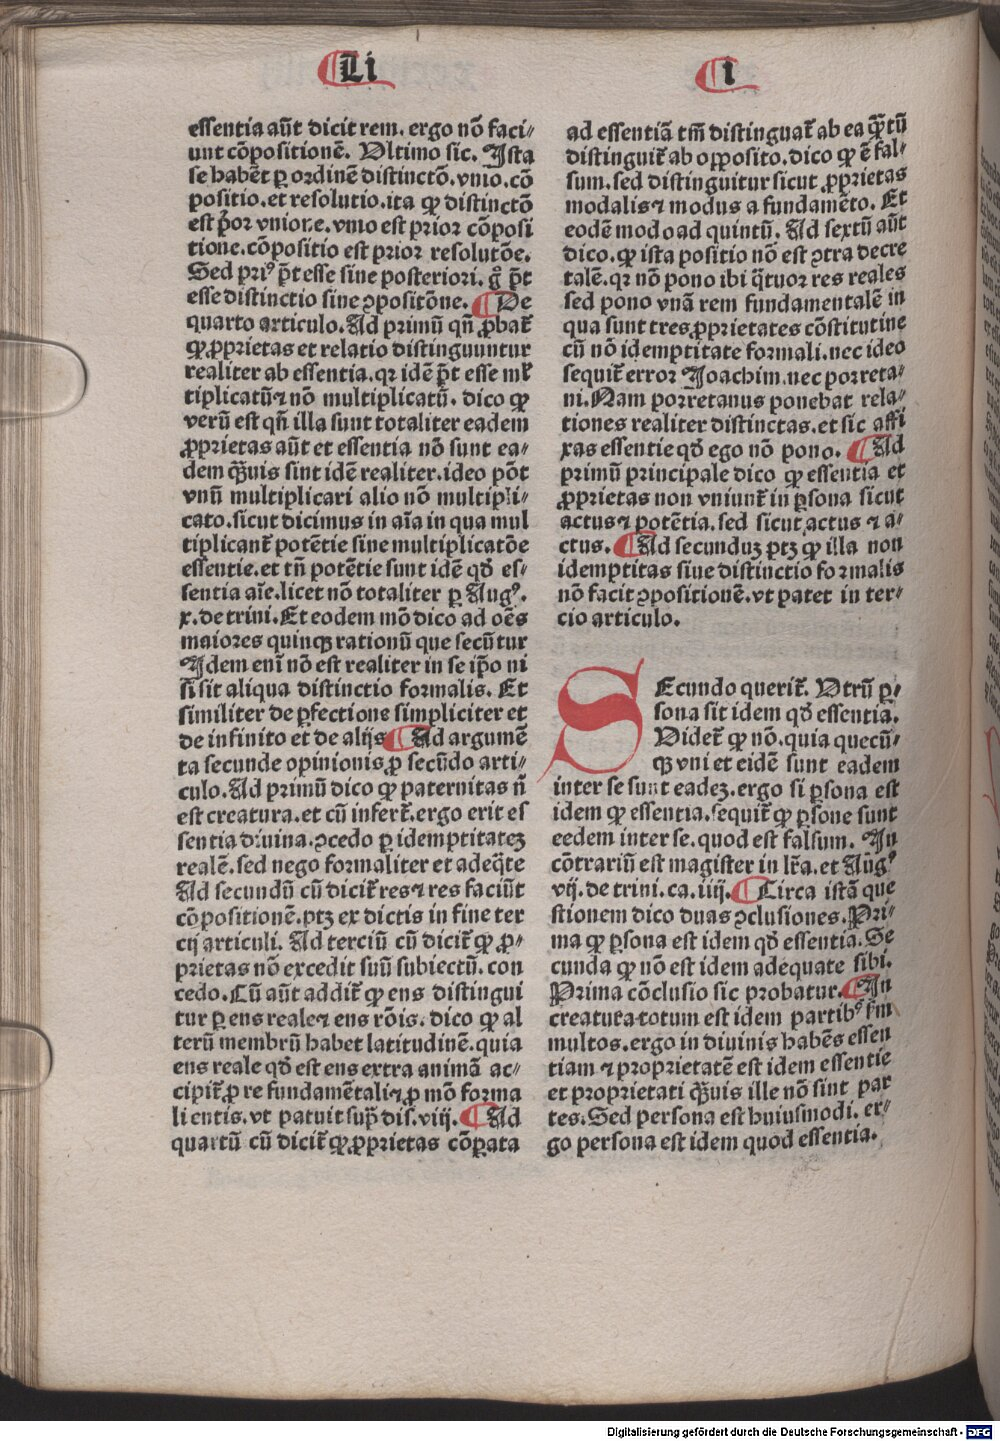 Li
i
essentia aūt dicit rem. ergo nō faci⸗
unt cōpositionē. Ultimo sic. Ista
se habēt ꝑ ordinē distinctō. vnio. cō
positio. et resolutio. ita ꝙ distinctō
est p̄or vnior.e. vnio est prior cōposi
tione. cōpositio est prior resolutōe.
Sed pri⁹ p̄t esse sine posteriori. gͦ p̄t
esse distinctio sine ꝯpositōne. ¶ De
quarto articulo. Ad primū qn̄ ꝓbat̄
ꝙ ꝓprietas et relatio distinguuntur
realiter ab essentia. qꝛ idē p̄t esse ml̄
tiplicatū ⁊ nō multiplicatū. dico ꝙ
verū est qn̄ illa sunt totaliter eadem
ꝓprietas aūt et essentia nō sunt ea⸗
dem q̄uis sint idē realiter. ideo pōt
vnū multiplicari alio nō multipli⸗
cato. sicut dicimus in aīa in qua mul
tiplicant̄ potētie sine multiplicatōe
essentie. et tn̄ potētie sunt idē qd̄ es⸗
sentia aīe. licet nō totaliter ꝑ Aug⁹.
x. de trini. Et eodem mō dico ad oēs
maiores quinqꝫ rationū que secūtur
Idem enī nō est realiter in se ip̄o ni
si sit aliqua distinctio formalis. Et
similiter de ꝑfectione simpliciter et
de infinito et de alijs ¶ Ad argumē
ta secunde opinionis ꝓ secūdo arti⸗
culo. Ad primū dico ꝙ paternitas n̄
est creatura. et cū infert̄. ergo erit es
sentia diuina. ꝯcedo ꝑ idemptitateꝫ
realē. sed nego formaliter et adeq̄te
Ad secundū cū dicit̄ res ⁊ res faciūt
cōpositionē. ptꝫ ex dictis in fine ter
cij articuli. Ad terciū cū dicit̄ ꝙ ꝓ⸗
prietas nō excedit suū subiectū. con
cedo. Cū aūt addit̄ ꝙ ens distingui
tur ꝑ ens reale ⁊ ens rōis. dico ꝙ al
terū membrū habet latitudinē. quia
ens reale qd̄ est ens extra animā ac⸗
cipit̄ ꝓ re fundamētali ⁊ ꝓ mō forma
li entis. vt patuit sup̄ dis. viij. ¶ Ad
quartū cū dicit̄ ꝙ ꝓprietas cōꝑata
ad essentiā tm̄ distinguat̄ ab ea q̄tū
distinguit̄ ab opposito. dico ꝙ ē fal⸗
sum. sed distinguitur sicut ꝓprietas
modalis ⁊ modus a fundamēto. Et
eodē modo ad quintū. Ad sextū aūt
dico. ꝙ ista positio nō est ꝯtra decre
talē. qꝛ nō pono ibi q̄tuor res reales
sed pono vnā rem fundamentalē in
qua sunt tres ꝓprietates cōstitutiue
cū nō idemptitate formali. nec ideo
sequit̄ error Joachim. nec porreta⸗
ni. Nam porretanus ponebat rela⸗
tiones realiter distinctas. et sic affi
xas essentie qd̄ ego nō pono. ¶ Ad
primū principale dico ꝙ essentia et
ꝓprietas non vniunt̄ in ꝑsona sicut
actus ⁊ potētia. sed sicut actus ⁊ a⸗
ctus. ¶ Ad secundꝫ ptꝫ ꝙ illa non
idemptitas siue distinctio formalis
nō facit ꝯpositionē. vt patet in ter⸗
cio articulo.
SEcundo querit̄. Utrū ꝑ⸗
sona sit idem qd̄ essentia.
Videt̄ ꝙ nō. quia quecū⸗
qꝫ vni et eidē sunt eadem
inter se sunt eadeꝫ. ergo si ꝑsona est
idem ꝙ essentia. sequit̄ ꝙ ꝑsone sunt
eedem inter se. quod est falsum. In
cōtrariū est magister in lr̄a. et Aug⁹
vij. de trini. ca. iiij. ¶ Circa istā que
stionem dico duas ꝯclusiones. Pri⸗
ma ꝙ ꝑsona est idem qd̄ essentia. Se
cunda ꝙ nō est idem adequate sibi.
Prima cōclusio sic probatur. ¶ In
creatura totum est idem partib⁹ fm̄
multos. ergo in diuinis habēs essen
tiam ⁊ proprietatē est idem essentie
et proprietati q̄uis ille nō sint par
tes. Sed persona est huiusmodi. er⸗
go persona est idem quod essentia.
Digitalisierung gefördert durch die Deutsche Forschungsgemeinschaft - DFG